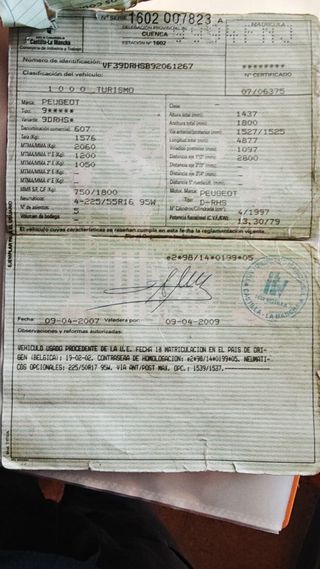 Nº SERIE 1602 007823 A
MATRICULA
Castilla-La Mancha
Consejería de Industria y Trabajo
DELEGACIÓN PROVINCIAL DE
CUENCA
ESTACIÓN Nº 1602
Número de identificación: VF39DRHSB92061267 ********
Clasificación del vehículo: Nº CERTIFICADO
1 0 0 0 TURISMO 07/06375
Marca: PEUGEOT
Tipo: 9*****
Variante: 9DRHS*
Denominación comercial: 607
Tara (Kg): 1576
MTMA/MMA (Kg): 2060
MTMA/MMA 1ª E (Kg): 1200
MTMA/MMA 2ª E (Kg): 1050
MTMA/MMA 3ª E (Kg):
MTMA/MMA 4ª E (Kg):
MMR S/F, C/F (Kg): 750/1800
Neumáticos: 4-225/55R16 95W
Nº de asientos: 5
Volumen de bodega:
Clase:
Altura total (mm): 1437
Anchura total (mm): 1800
Vía anterior/posterior (mm): 1527/1525
Longitud total (mm): 4877
Voladizo posterior (mm): 1097
Distancia eje 1º-2º (mm): 2800
Distancia eje 2º-3º (mm):
Distancia eje 3º-4º (mm):
Motor: Marca: PEUGEOT
Tipo: D-RHS
Nº Cilindros/Cilindrada (cm³): 4/1997
Potencia fiscal/real (C.V.F./KW): 13,30/79
El vehículo cuyas características se reseñan cumple en esta fecha la reglamentación vigente
e2*98/14*0199*05
Fecha 09-04-2007 Valedera por: 09-04-2009
Observaciones y reformas autorizadas:
VEHICULO USADO PROCEDENTE DE LA U.E. FECHA 1ª MATRICULACION EN EL PAIS DE ORI-
GEN (BELGICA): 19-02-02. CONTRASEÑA DE HOMOLOGACION: e2*98/14*0199*05. NEUMATI-
COS OPCIONALES: 225/50R17 95W. VIA ANT/POST MAX. OPC.: 1539/1537.
itv